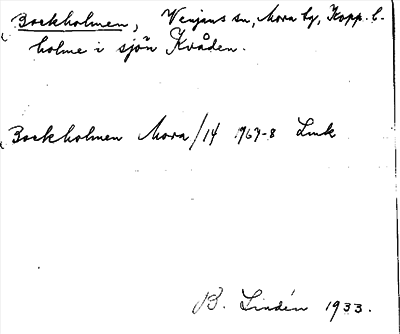 Bockholmen, Venjans sn, Mora tg, Kopp. l.
holme i sjön Kvåden.
Bockholmen Mora/14 1967-8 Link
B. Lindén 1933.